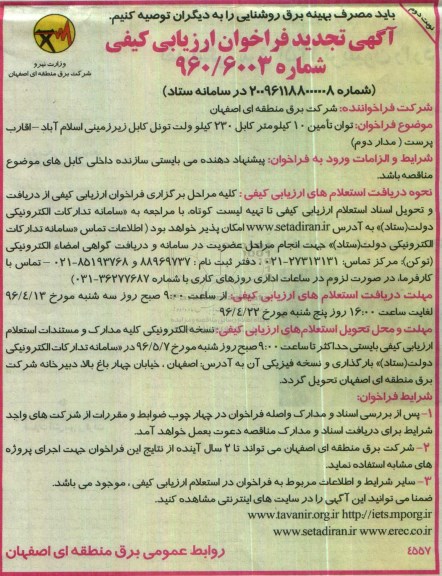 باید مصرف بهینه برق روشنایی را به دیگران توصیه کنیم.
نوبت دوم
آگهی تجدید فراخوان ارزیابی کیفی
شماره ۹۶۰/۶۰۰۳
(شماره ۲۰۰۹۶۱۱۸۸۰۰۰۰۰۸ در سامانه ستاد)
وزارت نیرو
شرکت برق منطقه ای اصفهان
شرکت فراخواننده: شرکت برق منطقه ای اصفهان
موضوع فراخوان: توان تأمین ۱۰ کیلومتر کابل ۲۳۰ کیلو ولت تونل کابل زیرزمینی اسلام آباد –اقارب
پرست ( مدار دوم)
شرایط و الزامات ورود به فراخوان: پیشنهاد دهنده می بایستی سازنده داخلی کابل های موضوع
مناقصه باشد.
نحوه دریافت استعلام های ارزیابی کیفی : کلیه مراحل برگزاری فراخوان ارزیابی کیفی از دریافت
و تحویل اسناد استعلام ارزیابی کیفی تا تهیه لیست کوتاه، با مراجعه به «سامانه تدارکات الکترونیکی
دولت(ستاد)» به آدرس www.setadiran.ir امکان پذیر خواهد بود ( اطلاعات تماس «سامانه تدارکات
الکترونیکی دولت(ستاد)» جهت انجام مراحل عضویت در سامانه و دریافت گواهی امضاء الکترونیکی
(توکن): مرکز تماس: ۲۷۳۱۳۱۳۱-۰۲۱ ، دفتر ثبت نام : ۸۸۹۶۹۷۳۷ و ۸۵۱۹۳۷۶۸-۰۲۱ – تماس با
کارفرما، در صورت لزوم در ساعات اداری روزهای کاری با شماره ۳۶۲۷۷۶۸۷-۰۳۱)
مهلت دریافت استعلام های ارزیابی کیفی: از ساعت ۹:۰۰ صبح روز سه شنبه مورخ ۹۶/۴/۱۳
لغایت ساعت ۱۶:۰۰ روز پنج شنبه مورخ ۹۶/۴/۲۲
مهلت و محل تحویل استعلام‌های ارزیابی کیفی: نسخه الکترونیکی کلیه مدارک و مستندات استعلام
ارزیابی کیفی بایستی حداکثر تا ساعت ۹:۰۰ صبح روز شنبه مورخ ۹۶/۵/۷ در «سامانه تدارکات الکترونیکی
دولت(ستاد)» بارگذاری و نسخه فیزیکی آن به آدرس: اصفهان ، خیابان چهار باغ بالا، دبیرخانه شرکت
برق منطقه ای اصفهان تحویل گردد.
شرایط فراخوان:
۱- پس از بررسی اسناد و مدارک واصله فراخوان در چهار چوب ضوابط و مقررات از شرکت های واجد
شرایط برای دریافت اسناد و مدارک مناقصه دعوت بعمل خواهد آمد.
۲- شرکت برق منطقه ای اصفهان می تواند تا ۲ سال آینده از نتایج این فراخوان جهت اجرای پروژه
های مشابه استفاده نماید.
۳- سایر شرایط و اطلاعات مربوط به فراخوان در استعلام ارزیابی کیفی ، موجود می باشد.
ضمنا می توانید این آگهی را در سایت های اینترنتی مشاهده کنید.
www.tavanir.org.ir http://iets.mporg.ir
www.setadiran.ir www.erec.co.ir
۴۵۵۷
روابط عمومی برق منطقه ای اصفهان